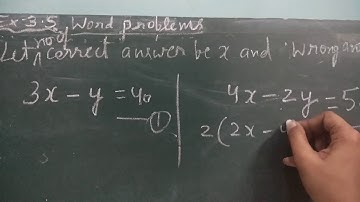 Ex 3.5, Word problems
Let no of correct answer be x and wrong an
3x - y = 40
①
4x - 2y = 5
2(2x -